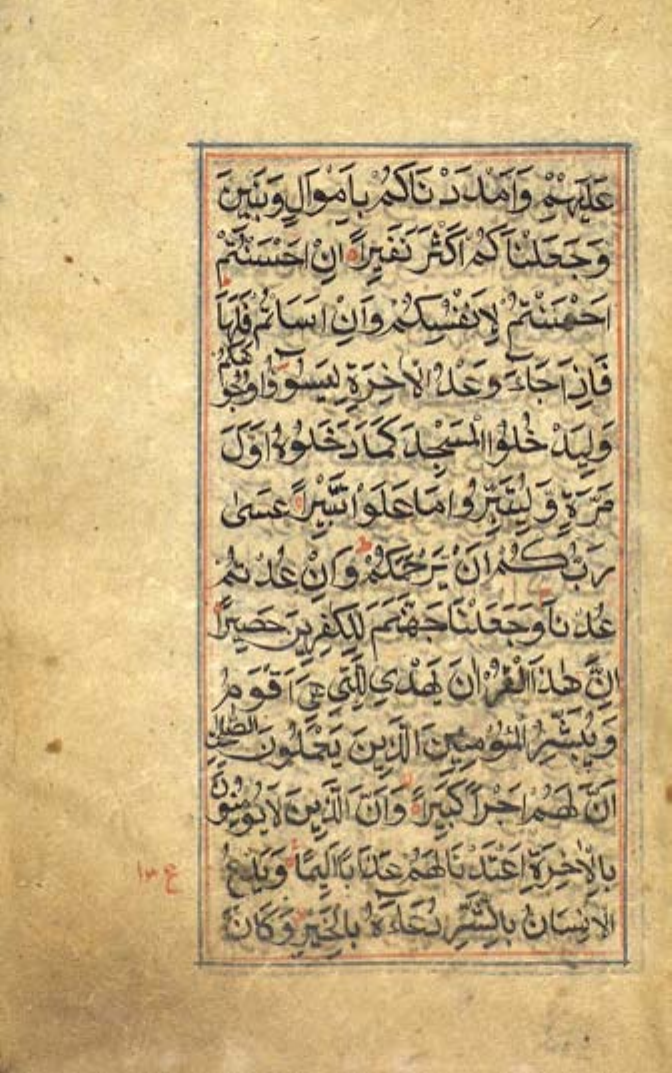 عَلَيْهِمْ وَاَمْدَدْنَاكُمْ بِاَمْوَالٍ وَبَنِينَ
وَجَعَلْنَاكُمْ اَكْثَرَ نَفِيرًا اِنْ اَحْسَنْتُمْ
اَحْسَنْتُمْ لِاَنْفُسِكُمْ وَاِنْ اَسَاْتُمْ فَلَهَا
فَاِذَا جَاءَ وَعْدُ الْاٰخِرَةِ لِيَسُوءُوا وُجُوهَكُمْ
وَلِيَدْخُلُوا الْمَسْجِدَ كَمَا دَخَلُوهُ اَوَّلَ
مَرَّةٍ وَّلِيُتَبِّرُوا مَا عَلَوْا تَتْبِيرًا عَسٰى
رَبُّكُمْ اَنْ يَرْحَمَكُمْ وَاِنْ عُدْتُمْ
عُدْنَا وَجَعَلْنَا جَهَنَّمَ لِلْكٰفِرِينَ حَصِيرًا
اِنَّ هٰذَا الْقُرْاٰنَ يَهْدِي لِلَّتِي هِيَ اَقْوَمُ
وَيُبَشِّرُ الْمُؤْمِنِينَ الَّذِينَ يَعْمَلُونَ الصّٰلِحٰتِ
اَنَّ لَهُمْ اَجْرًا كَبِيرًا وَاَنَّ الَّذِينَ لَا يُؤْمِنُونَ
بِالْاٰخِرَةِ اَعْتَدْنَا لَهُمْ عَذَابًا اَلِيمًا وَيَدْعُ
الْاِنْسَانُ بِالشَّرِّ دُعَاءَهُ بِالْخَيْرِ وَكَانَ